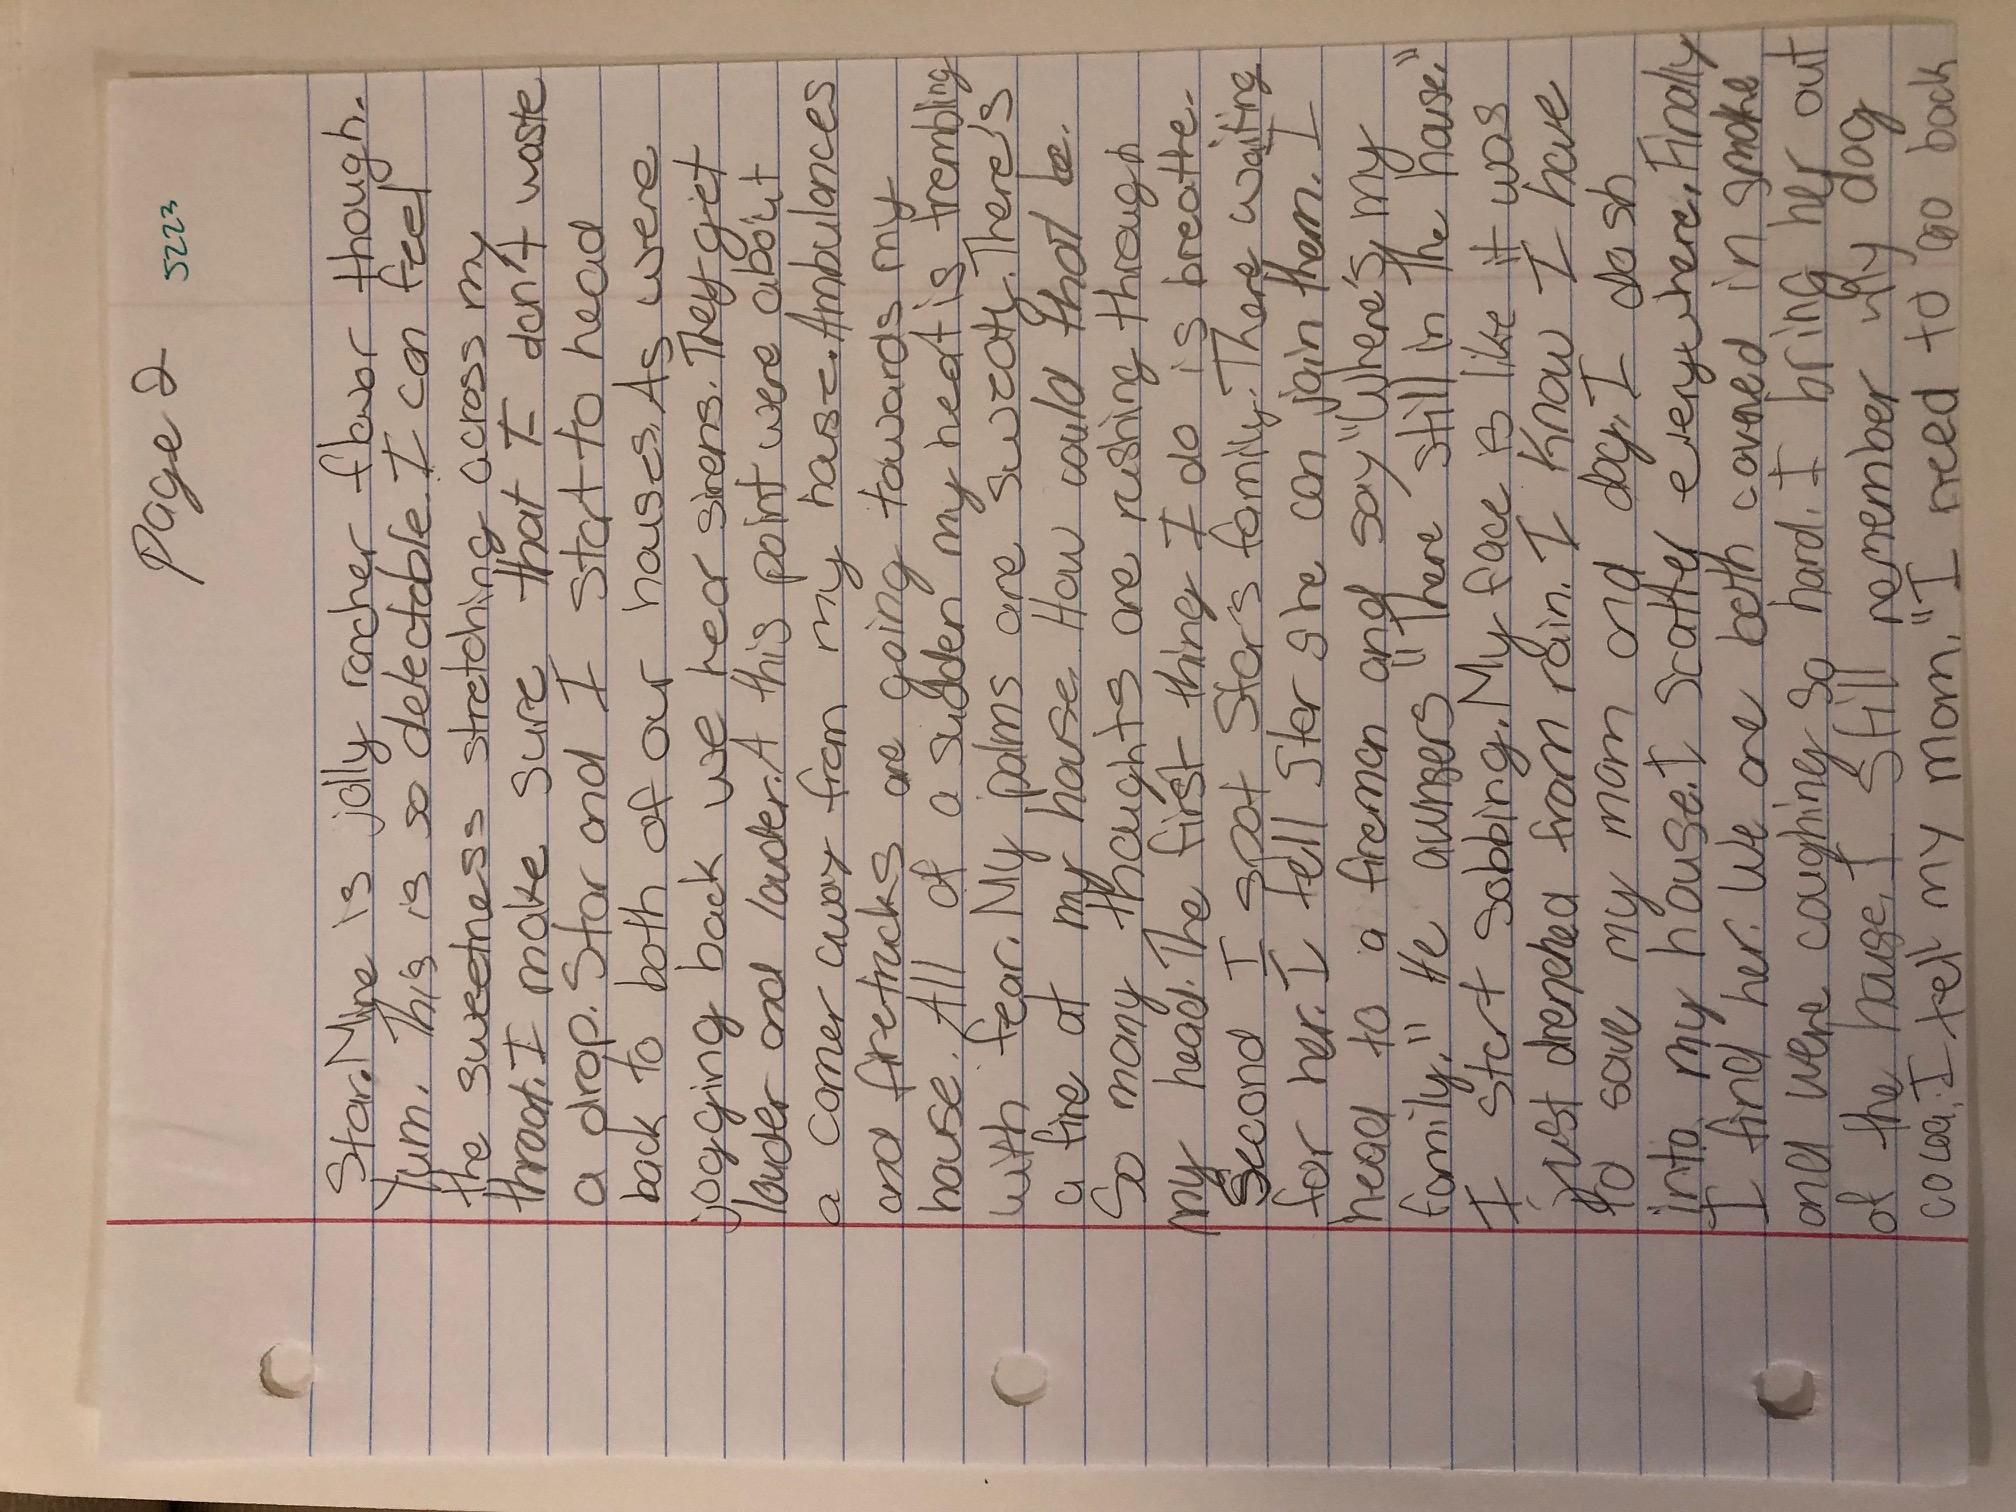 Page 2 5223
Star. Mine is jolly rancher flavor though.
Yum. This is so delectable. I can feel
the sweetness stretching across my
throat. I make sure that I don't waste
a drop. Star and I start to head
back to both of our houses. As were
jogging back we hear sirens. They get
louder and louder. A this point were about
a corner away from my house. Ambulances
and firetrucks are going towards my
house. All of a sudden my heat is trembling
with fear. My palms are sweaty. There's
a fire at my house. How could that be.
So many thoughts are rushing through
my head. The first thing I do is breathe.
Second I spot Star's family. There waiting
for her. I tell Star she can join them. I
head to a fireman and say "Where's my
family." He awnsers "There still in The house."
I start sobbing. My face is like it was
just drenched from rain. I know I have
to save my mom and dog. I dash
into my house. I scatter everywhere. Finally
I find her. We are both covered in smoke
and were coughing so hard. I bring her out
of the house. I still remember my dog
cocoa. I tell my mom, "I need to go back